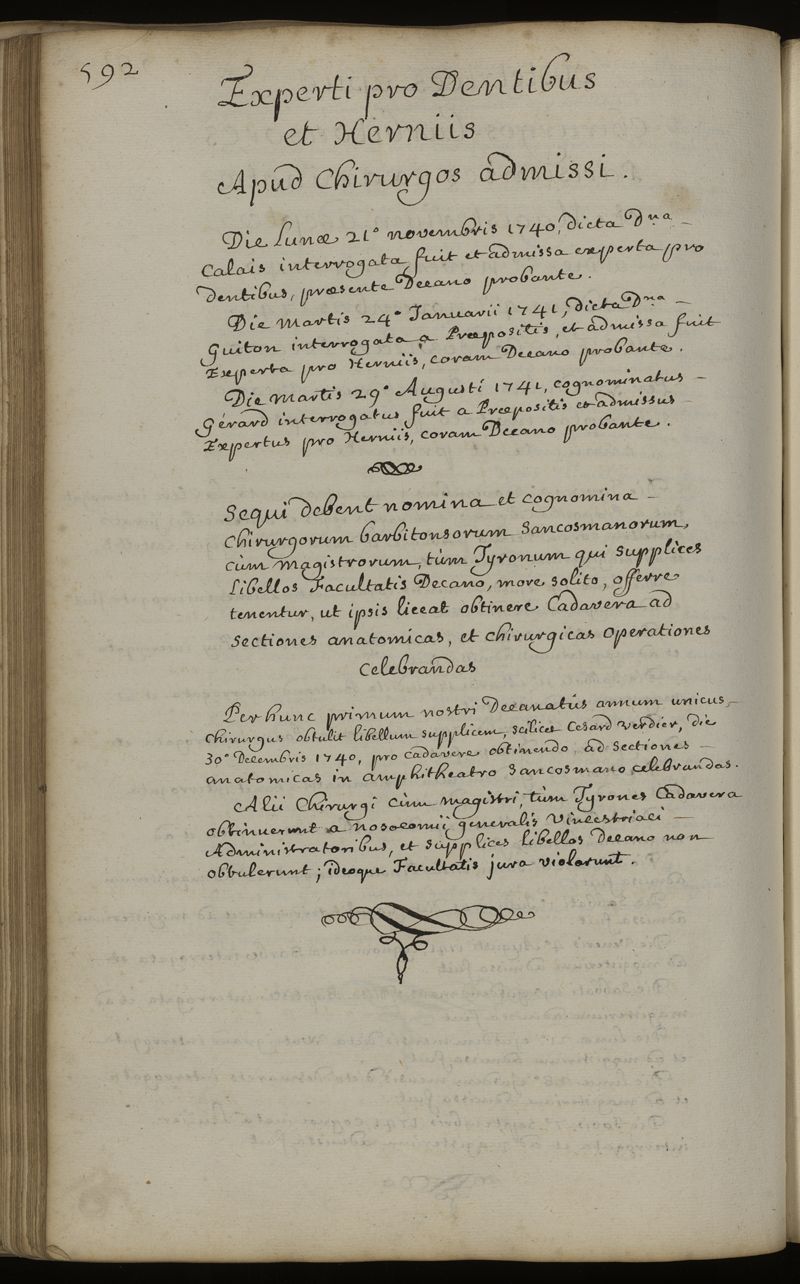 592
Experti pro Dentibus
et Herniis
Apud Chirurgos admissi.
Die Lunæ 21° novembris 1740, dicta Dna
Calais interrogata fuit et admissa experta pro
dentibus, præsente Decano probante.
Die Martis 24° Januarii 1741, dicta Dna
Guiton interrogata a Præpositis, et admissa fuit
Experta pro Herniis, coram Decano probante.
Die Martis 29° Augusti 1741, cognominatus
Gérard interrogatus fuit a Præpositis et admissus
Expertus pro Herniis, coram Decano probante.
Sequi debent nomina et cognomina
Chirurgorum barbitonsorum Sancosmanorum,
cùm magistrorum, tùm Tyronum qui supplices
Libellos Facultatis Decano, more solito, offerre
tenentur, ut ipsis liceat obtinere Cadavera ad
Sectiones anatomicas, et chirurgicas operationes
celebrandas
Per hunc primum nostri Decanatûs annum unicus
Chirurgus obtulit libellum supplicem, scilicet Cesard Verdier, die
30° Decembris 1740, pro cadavere obtinendo ad Sectiones
anatomicas in amphitheatro Sancosmano celebrandas.
Alii Chirurgi cùm magistri, tùm Tyrones Cadavera
obtinuerunt a nosocomii generalis Vincestriaci
Administratoribus, et supplices libellos Decano non
obtulerunt; ideoque Facultatis jura violarunt.